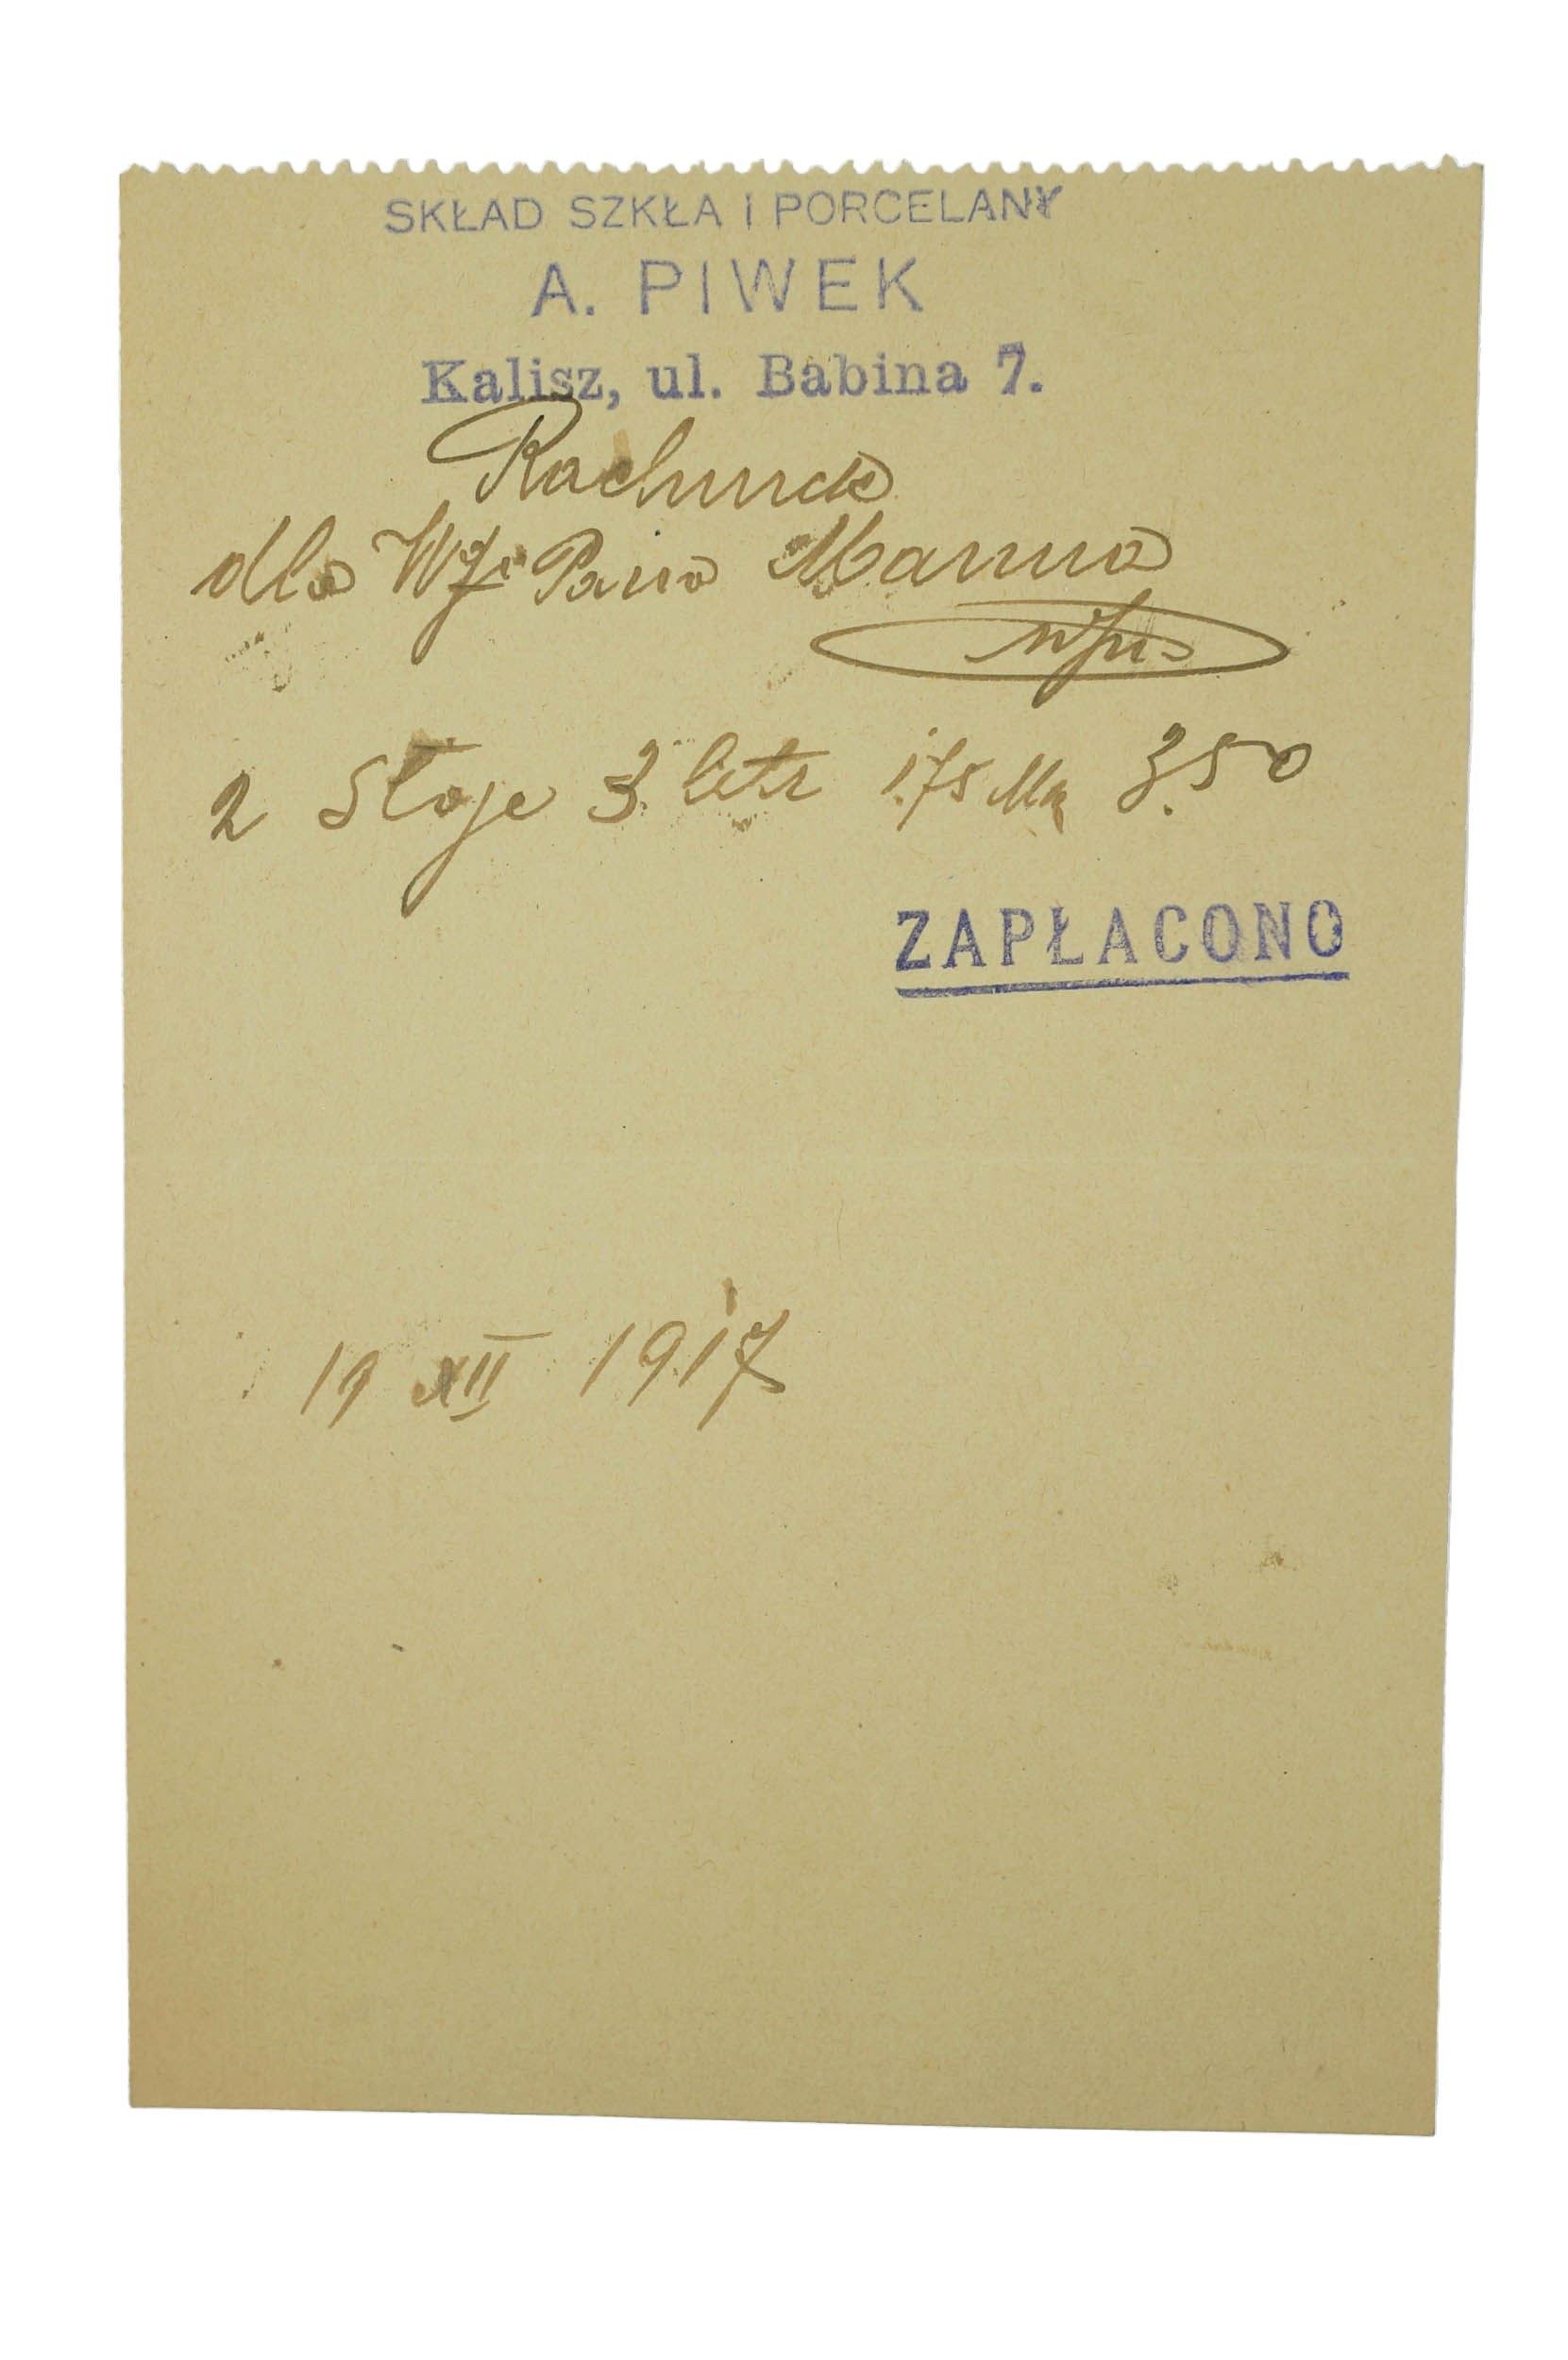 SKŁAD SZKŁA I PORCELANY
A. PIWEK
Kalisz, ul. Babina 7.
Rachunek
dla Pana Manna
2 Słoje 3 litr 1.75 Mk 3.50
ZAPŁACONO
19 XII 1917